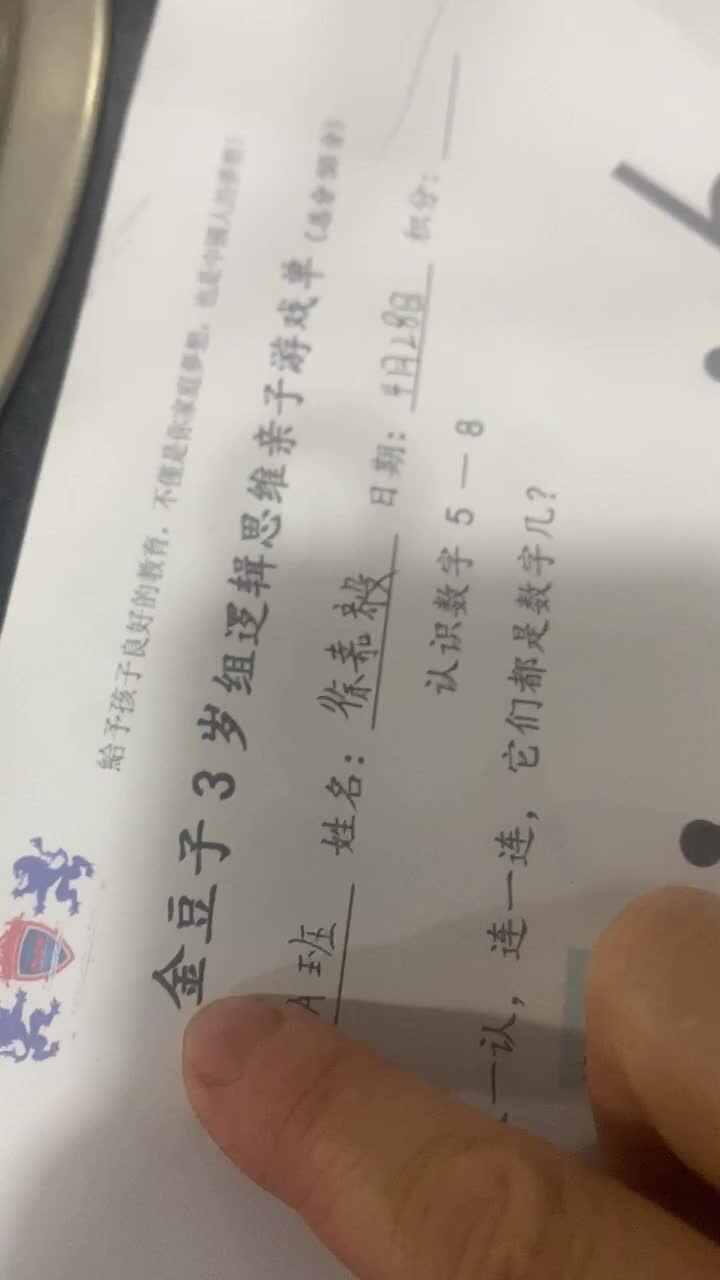 給予孩子良好的教育，不僅是你家庭夢想，也是中國人的夢想！
金豆子3岁组逻辑思维亲子游戏单（满分100分）
A班 姓名：徐嘉毅 日期：4月28日 积分：
认识数字5—8
一认，连一连，它们都是数字几？